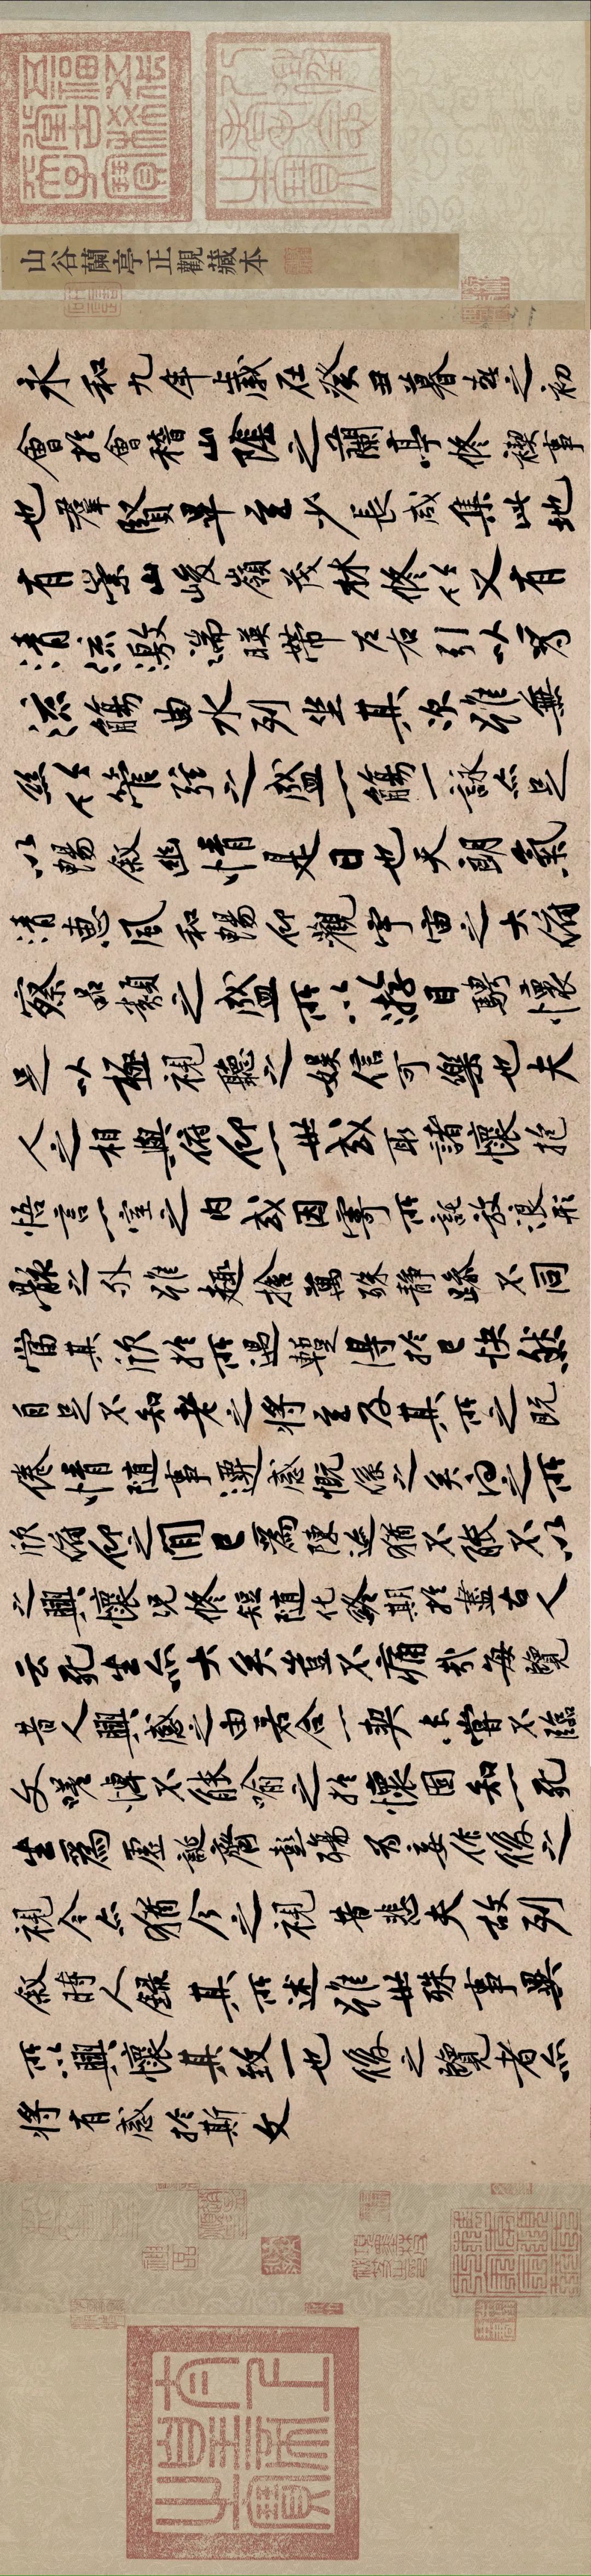 五福五代堂古稀天子寶
八徵耄念之寶
山谷蘭亭正觀藏本
永和九年歲在癸丑暮春之初
會於會稽山陰之蘭亭修禊事
也群賢畢至少長咸集此地
有崇山峻嶺茂林修竹又有
清流激湍暎帶左右引以為
流觴曲水列坐其次雖無
絲竹管弦之盛一觴一詠亦足
以暢敘幽情是日也天朗氣
清惠風和暢仰觀宇宙之大俯
察品類之盛所以遊目騁懷
足以極視聽之娛信可樂也夫
人之相與俯仰一世或取諸懷抱
悟言一室之內或因寄所託放浪形
骸之外雖趣捨萬殊靜躁不同
當其欣於所遇暫得於己快然
自足不知老之將至及其所之既
倦情隨事遷感慨係之矣向之所
欣俯仰之間已為陳迹猶不能不以
之興懷況修短隨化終期於盡古人
云死生亦大矣豈不痛哉每覽
昔人興感之由若合一契未嘗不臨
文嗟悼不能喻之於懷固知一死
生為虛誕齊彭殤為妄作後之
視今亦猶今之視昔悲夫故列
敘時人錄其所述雖世殊事異
所以興懷其致一也後之覽者亦
將有感於斯文